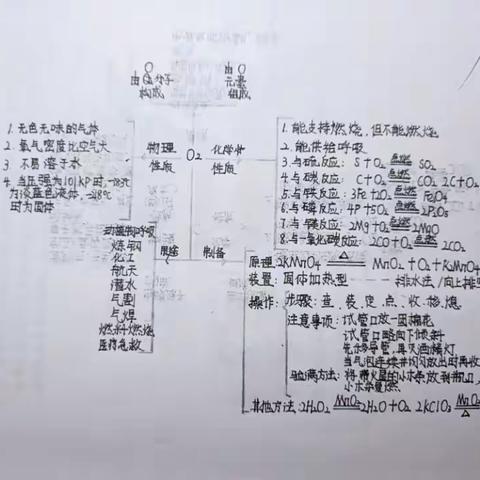 O
由O₂分子
构成
由O
元素
组成
O₂
物理
性质
化学性
性质
1. 无色无味的气体
2. 氧气密度比空气大
3. 不易溶于水
4. 当压强为101KP时,-183℃
为淡蓝色液体,-218℃
时为固体
1. 能支持燃烧,但不能燃烧
2. 能供给呼吸
3. 与硫反应: S+O₂ 点燃 SO₂
4. 与碳反应: C+O₂ 点燃 CO₂ 2C+O₂
5. 与铁反应: 3Fe+2O₂ 点燃 Fe₃O₄
6. 与磷反应: 4P+5O₂ 点燃 2P₂O₅
7. 与镁反应: 2Mg+O₂ 点燃 2MgO
8. 与一氧化碳反应: 2CO+O₂ 点燃 2CO₂
用途
动植物呼吸
炼钢
化工
航天
潜水
气割
气焊
燃料燃烧
医疗急救
制备
原理: 2KMnO₄ △ MnO₂+O₂+K₂MnO₄
装置: 固体加热型 — 排水法/向上排
操作: 步骤: 查、装、定、点、收、移、熄
注意事项: 试管口放一团棉花
试管口略向下倾斜
先移导管,再灭酒精灯
当气泡连续并均匀放出时再收
验满方法: 将带火星的小木条放到瓶口,
小木条复燃
其他方法: 2H₂O₂ MnO₂ 2H₂O+O₂ 2KClO₃ MnO₂ △